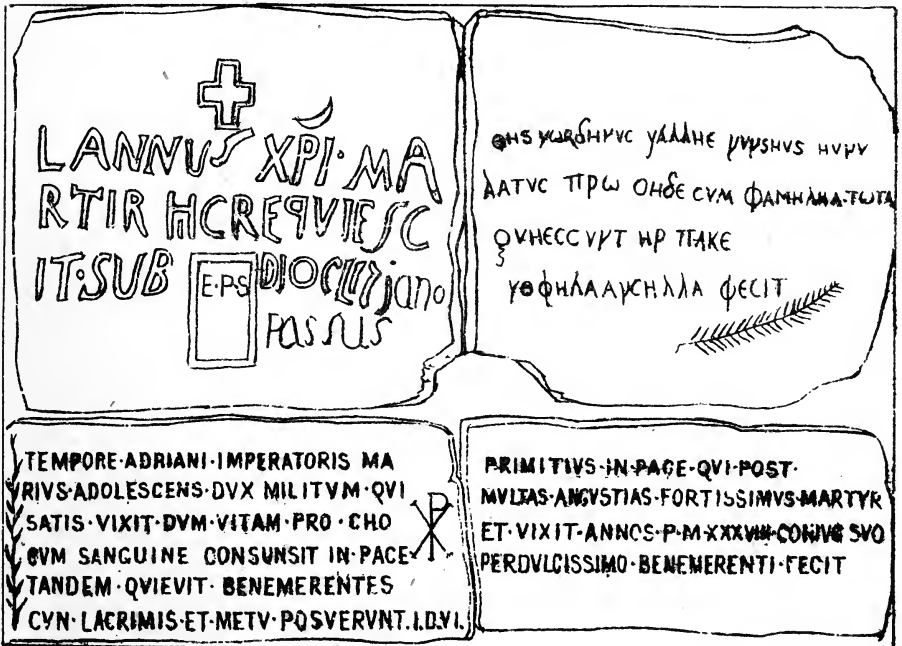 LANNUS XPI·MA
RTIR HCREQVIESC
IT·SUB DIOCLIZIANO
E·P·S
PASSUS
ΓΑΛΛΗΕ
ΛΑΤVC ΠΡω CVM ΦΑΜΗΛΗΑ·ΤωΤΑ
QVHECCVNT ΠΑΚΕ
ΦΕCΙΤ
TEMPORE·ADRIANI·IMPERATORIS MA
RIVS·ADOLESCENS·DVX MILITVM·QVI
SATIS·VIXIT·DVM·VITAM·PRO·CHO
CVM SANGUINE CONSUNSIT IN·PACE·
TANDEM·QVIEVIT·BENEMERENTES
CVN·LACRIMIS·ET·METV·POSVERVNT.I.D.VI.
PRIMITIVS·IN·PACE·QVI·POST·
MVLTAS·ANGVSTIAS·FORTISSIMVS·MARTYR
ET·VIXIT·ANNOS·P·M·XXXVIII·CONJVG SVO
PERDVLCISSIMO·BENEMERENTI·FECIT